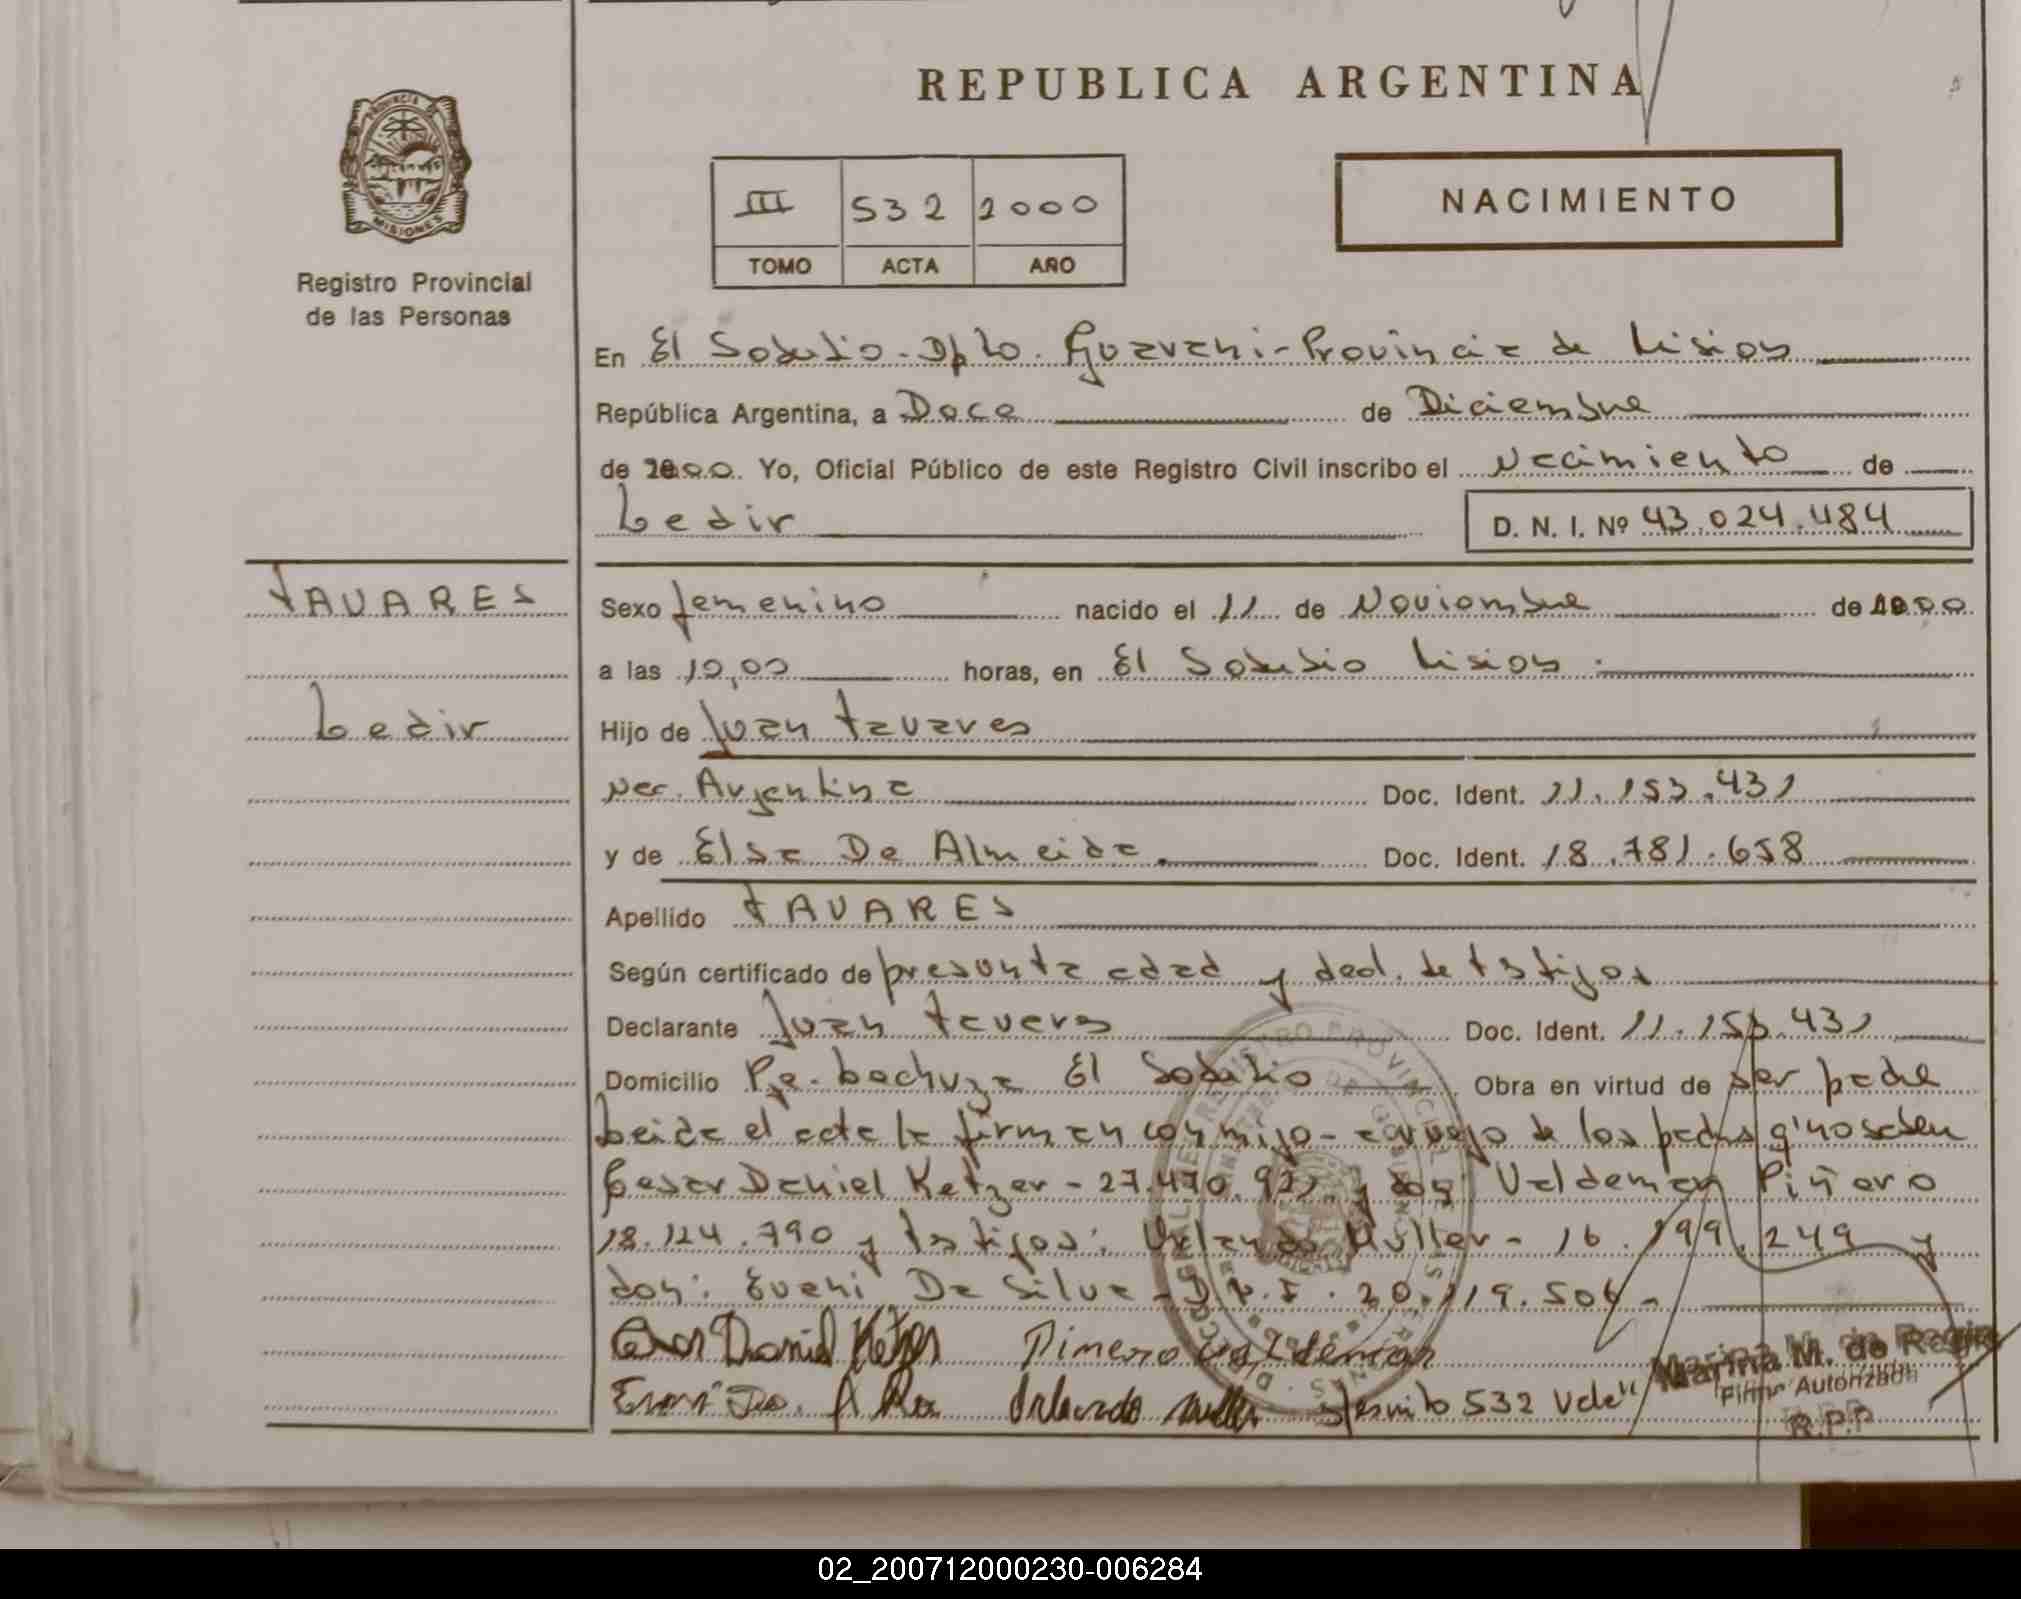 REPUBLICA ARGENTINA
PROVINCIA DE
MISIONES
Registro Provincial
de las Personas
NACIMIENTO
III 532 2000
TOMO ACTA AÑO
En El Soberbio - Dpto. Guarani - Provincia de Misiones
República Argentina, a Doce de Diciembre
de 2000. Yo, Oficial Público de este Registro Civil inscribo el Nacimiento de
Ledir D. N. I. Nº 43.024.484
TAVARES
Ledir
Sexo femenino nacido el 11 de Noviembre de 2000
a las 10,00 horas, en El Soberbio Misiones.
Hijo de Juan Tavares
Nac. Argentina Doc. Ident. 11.153.431
y de Elsa De Almeida. Doc. Ident. 18.781.658
Apellido TAVARES
Según certificado de presunta edad y decl. de testigos
Declarante Juan Tavares Doc. Ident. 11.153.431
Domicilio El Soberbio Obra en virtud de ser padre
Leida el acta la firman conmigo - a ruego de los padres q' no saben
Cesar Daniel Ketzer - 27.470.92 y don: Valdemar Piñero
18.124.790 y testigos: Muller - 16.199.249 y
don: Eueni Da Silva - D.N.I. 20.119.506 -
Cesar Daniel Ketzer Pimero Valdemar
Orlando Muller 532 Vale"
Marina M. de Regis
Firma Autorizada
R.P.P
02_200712000230-006284